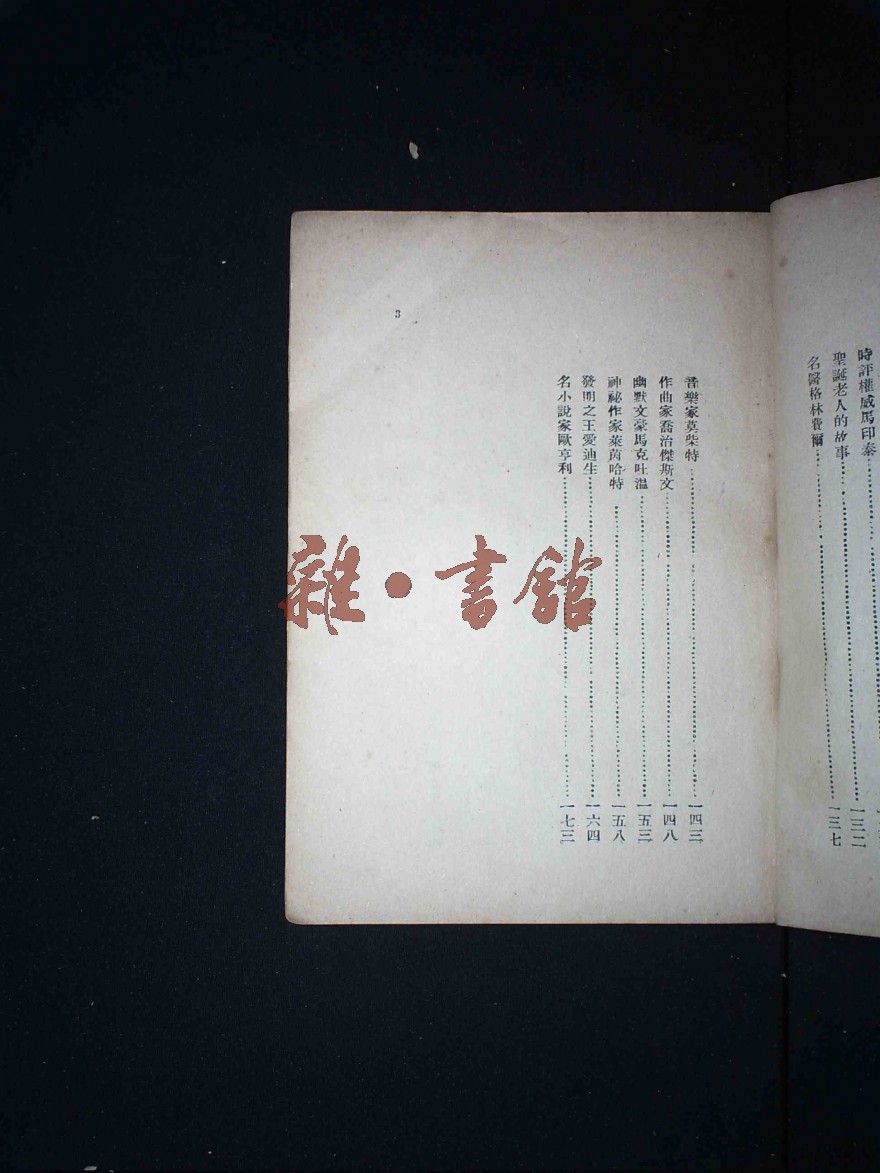 時評權威馬印泰
聖誕老人的故事……一三二
名醫格林費爾……一三七
音樂家莫柴特……一四三
作曲家喬治傑斯文……一四八
幽默文豪馬克吐溫……一五三
神祕作家萊茵哈特……一五八
發明之王愛迪生……一六四
名小說家歐亨利……一七三
3
雜·書館